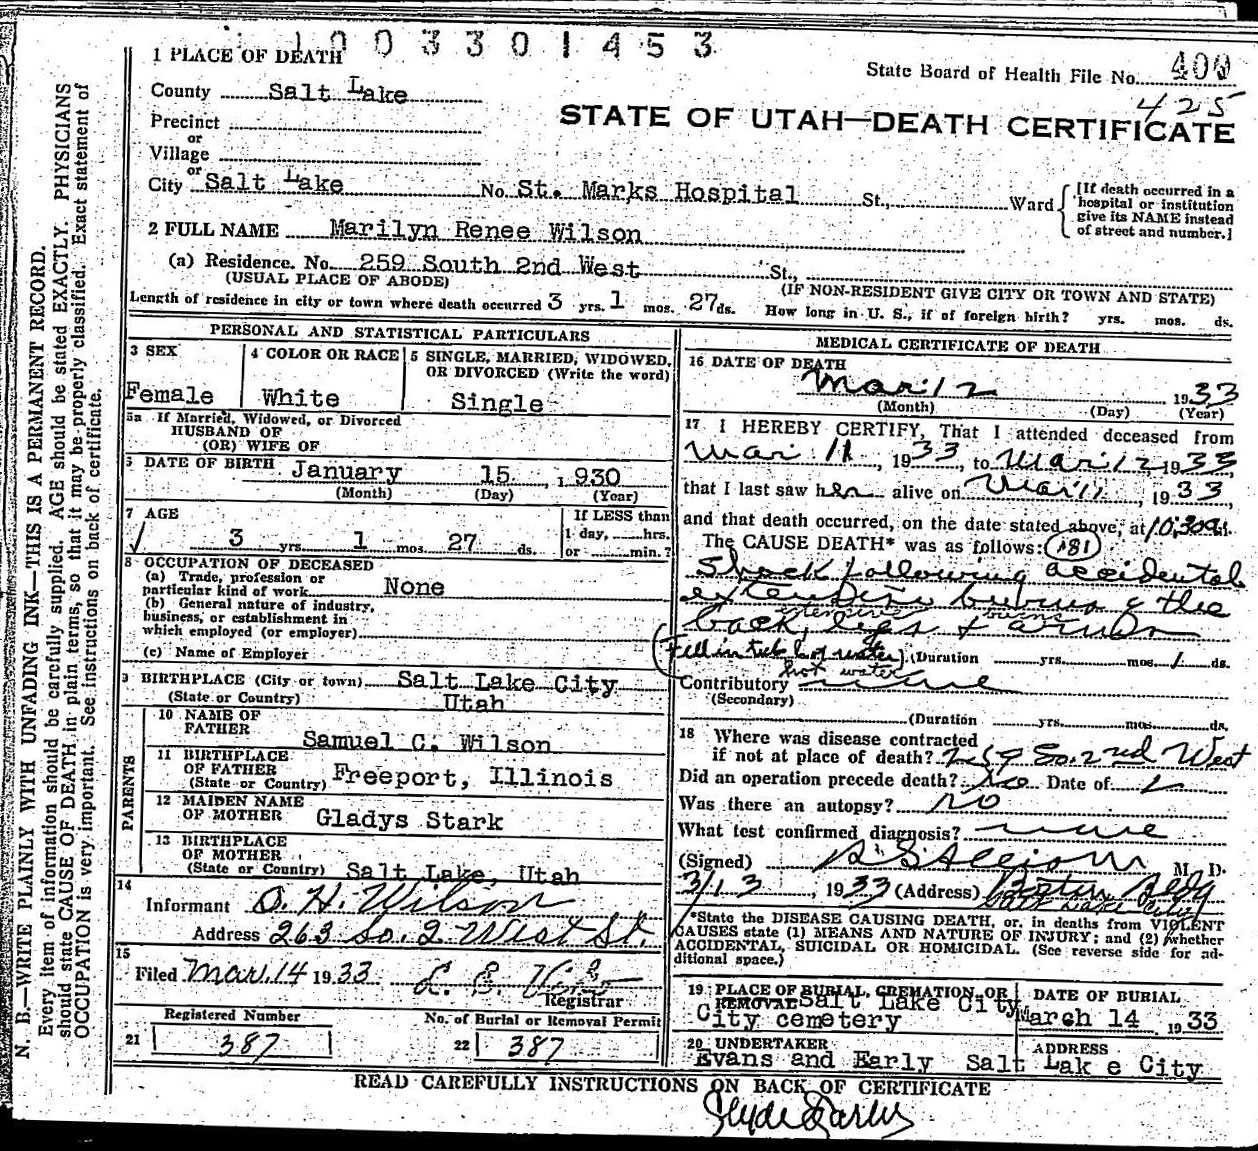 1003301453
1 PLACE OF DEATH
State Board of Health File No. 400
425
County Salt Lake
STATE OF UTAH—DEATH CERTIFICATE
Precinct
or
Village
or
City Salt Lake No. St. Marks Hospital St., Ward
[If death occurred in a
hospital or institution
give its NAME instead
of street and number.]
2 FULL NAME Marilyn Renee Wilson
(a) Residence. No. 259 South 2nd West St.,
(USUAL PLACE OF ABODE)
(IF NON-RESIDENT GIVE CITY OR TOWN AND STATE)
Length of residence in city or town where death occurred 3 yrs. 1 mos. 27 ds. How long in U. S., if of foreign birth? yrs. mos. ds.
PERSONAL AND STATISTICAL PARTICULARS
3 SEX
Female
4 COLOR OR RACE
White
5 SINGLE, MARRIED, WIDOWED,
OR DIVORCED (Write the word)
Single
5a If Married, Widowed, or Divorced
HUSBAND OF
(OR) WIFE OF
DATE OF BIRTH January 15 , 1930
(Month) (Day) (Year)
7 AGE
If LESS than
3 yrs. 1 mos. 27 ds.
1 day, hrs.
or min.?
8 OCCUPATION OF DECEASED
(a) Trade, profession or
particular kind of work None
(b) General nature of industry,
business, or establishment in
which employed (or employer)
(c) Name of Employer
9 BIRTHPLACE (City or town) Salt Lake City
(State or Country) Utah
PARENTS
10 NAME OF
FATHER
Samuel C. Wilson
11 BIRTHPLACE
OF FATHER
(State or Country) Freeport, Illinois
12 MAIDEN NAME
OF MOTHER Gladys Stark
13 BIRTHPLACE
OF MOTHER
(State or Country) Salt Lake, Utah
14
Informant O. H. Wilson
Address 263 So. 2 West St.
15
Filed Mar. 14 1933
Registrar
Registered Number
21 387
No. of Burial or Removal Permit
22 387
MEDICAL CERTIFICATE OF DEATH
16 DATE OF DEATH
Mar 12 1933
(Month) (Day) (Year)
17 I HEREBY CERTIFY, That I attended deceased from
Mar 11 , 1933, to Mar 12 1933
that I last saw her alive on Mar 11 , 1933,
and that death occurred, on the date stated above, at 10:30 a.
The CAUSE DEATH* was as follows: 181
Shock following accidental
extensive burns of the
extensive burns
back, legs & arms
(Fell in tub hot water) (Duration yrs. mos. 1 ds.
hot water
Contributory none
(Secondary)
(Duration yrs. mos. ds.
18 Where was disease contracted
if not at place of death? 259 So. 2nd West
Did an operation precede death? No Date of
Was there an autopsy? no
What test confirmed diagnosis? none
(Signed) M. D.
3/13 , 1933 (Address) Boston Bldg
Salt Lake City
*State the DISEASE CAUSING DEATH, or, in deaths from VIOLENT
CAUSES state (1) MEANS AND NATURE OF INJURY; and (2) whether
ACCIDENTAL, SUICIDAL OR HOMICIDAL. (See reverse side for ad-
ditional space.)
19 PLACE OF BURIAL, CREMATION, OR
REMOVAL Salt Lake City
City cemetery
DATE OF BURIAL
March 14 , 1933
20 UNDERTAKER
Evans and Early Salt Lake City
ADDRESS
READ CAREFULLY INSTRUCTIONS ON BACK OF CERTIFICATE
N. B.—WRITE PLAINLY WITH UNFADING INK—THIS IS A PERMANENT RECORD.
Every item of information should be carefully supplied. AGE should be stated EXACTLY. PHYSICIANS
should state CAUSE OF DEATH in plain terms, so that it may be properly classified. Exact statement of
OCCUPATION is very important. See instructions on back of certificate.